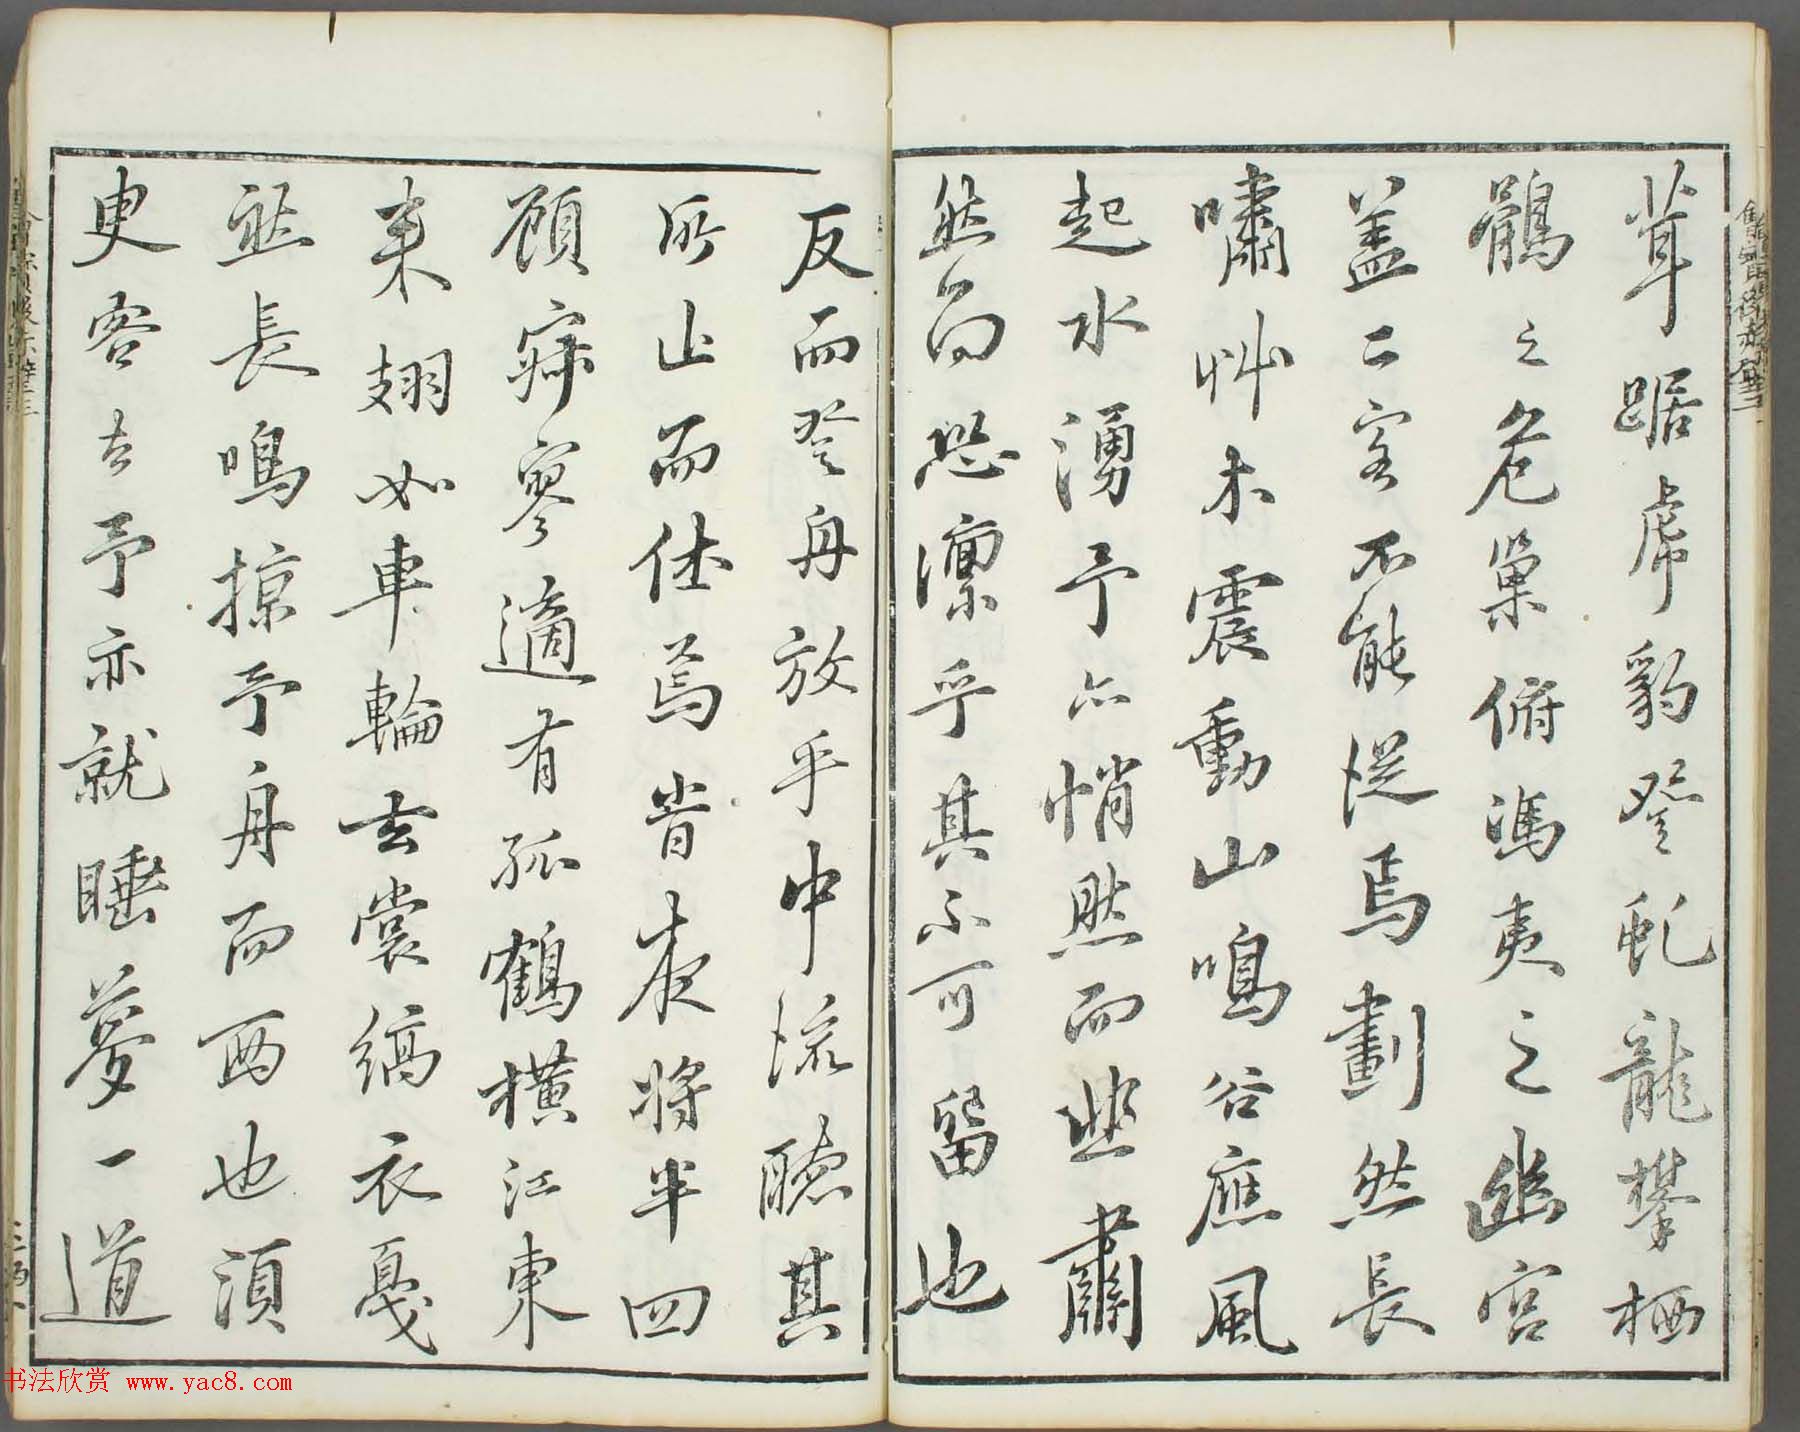 茸踞虎豹登虬龍攀栖
鶻之危巢俯馮夷之幽宮
蓋二客不能從焉劃然長
嘯草木震動山鳴谷應風
起水湧予亦悄然而悲肅
然而恐凜乎其不可留也
反而登舟放乎中流聽其
所止而休焉時夜將半四
顧寂寥適有孤鶴橫江東
來翅如車輪玄裳縞衣戛
然長鳴掠予舟而西也須
臾客去予亦就睡夢一道
书法欣赏 www.yac8.com